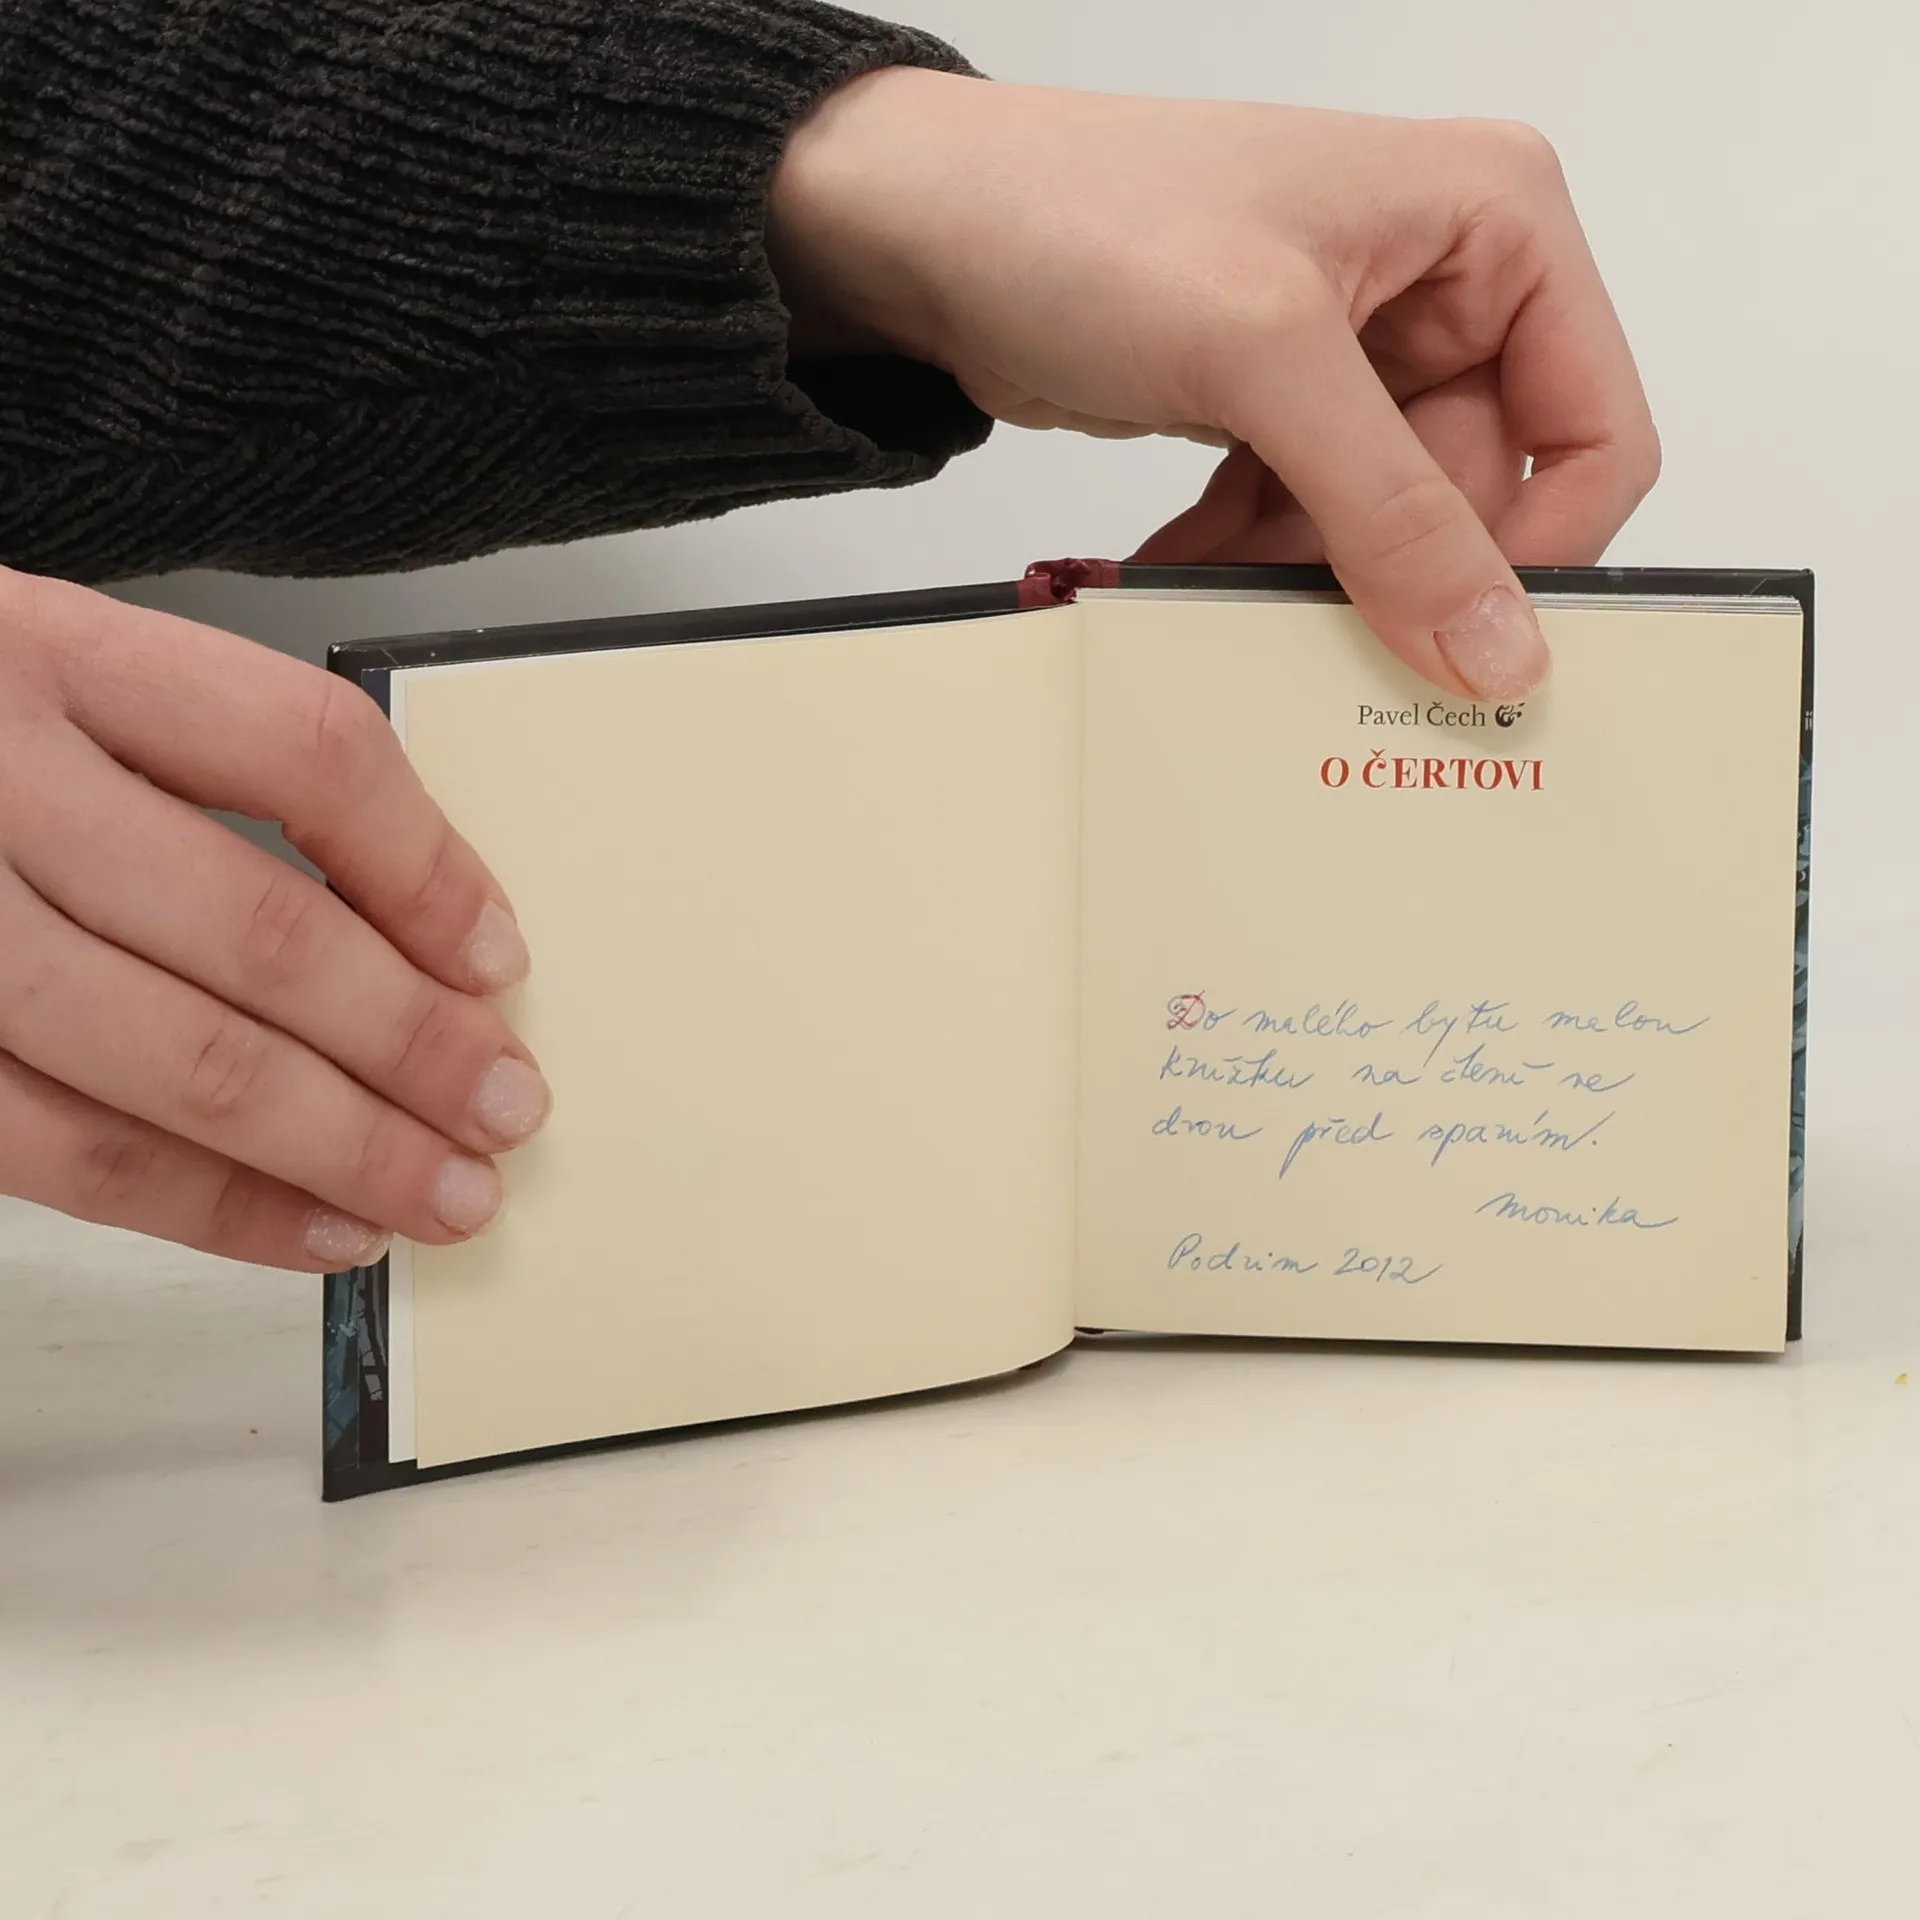 Pavel Čech
O ČERTOVI
Do malého bytu malou
knížku na čtení ve
dvou před spaním.
Monika
Podzim 2012